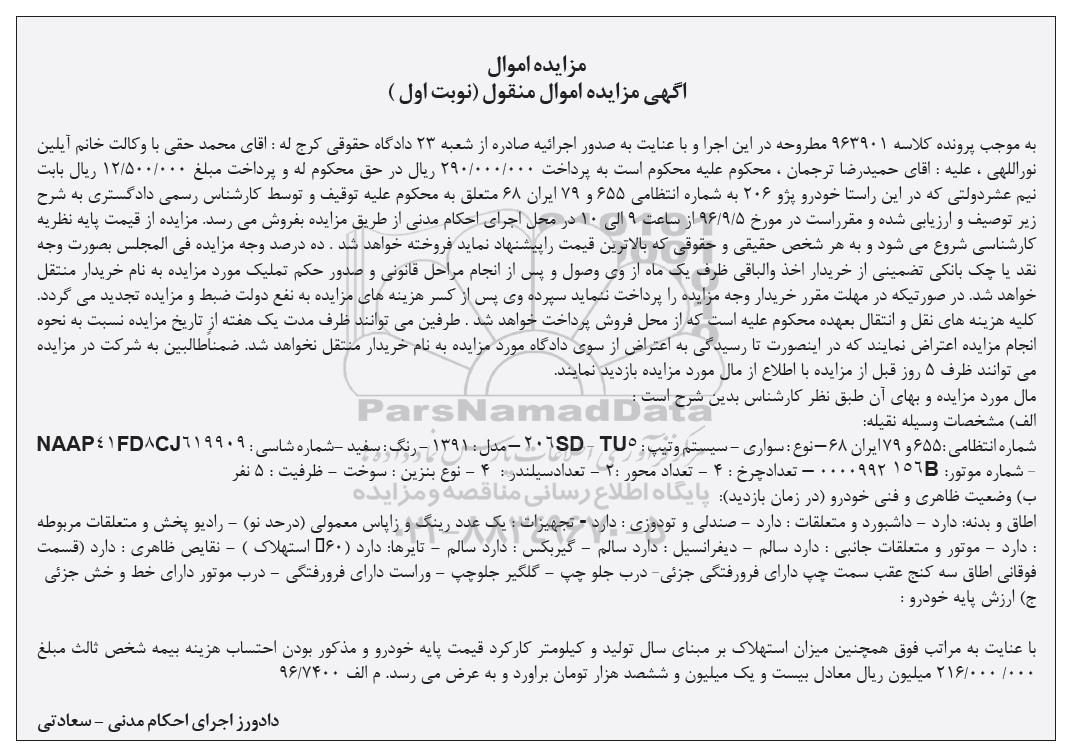 مزایده اموال
اگهی مزایده اموال منقول (نوبت اول )
به موجب پرونده کلاسه ۹۶۳۹۰۱ مطروحه در این اجرا و با عنایت به صدور اجرائیه صادره از شعبه ۲۳ دادگاه حقوقی کرج له : اقای محمد حقی با وکالت خانم آیلین
نوراللهی ، علیه : اقای حمیدرضا ترجمان ، محکوم علیه محکوم است به پرداخت ۲۹۰/۰۰۰/۰۰۰ ریال در حق محکوم له و پرداخت مبلغ ۱۲/۵۰۰/۰۰۰ ریال بابت
نیم عشردولتی که در این راستا خودرو پژو ۲۰۶ به شماره انتظامی ۶۵۵ و ۷۹ ایران ۶۸ متعلق به محکوم علیه توقیف و توسط کارشناس رسمی دادگستری به شرح
زیر توصیف و ارزیابی شده و مقرراست در مورخ ۹۶/۹/۵ از ساعت ۹ الی ۱۰ در محل اجرای احکام مدنی از طریق مزایده بفروش می رسد. مزایده از قیمت پایه نظریه
کارشناسی شروع می شود و به هر شخص حقیقی و حقوقی که بالاترین قیمت راپیشنهاد نماید فروخته خواهد شد . ده درصد وجه مزایده فی المجلس بصورت وجه
نقد یا چک بانکی تضمینی از خریدار اخذ والباقی ظرف یک ماه از وی وصول و پس از انجام مراحل قانونی و صدور حکم تملیک مورد مزایده به نام خریدار منتقل
خواهد شد. در صورتیکه در مهلت مقرر خریدار وجه مزایده را پرداخت ننماید سپرده وی پس از کسر هزینه های مزایده به نفع دولت ضبط و مزایده تجدید می گردد.
کلیه هزینه های نقل و انتقال بعهده محکوم علیه است که از محل فروش پرداخت خواهد شد . طرفین می توانند ظرف مدت یک هفته از تاریخ مزایده نسبت به نحوه
انجام مزایده اعتراض نمایند که در اینصورت تا رسیدگی به اعتراض از سوی دادگاه مورد مزایده به نام خریدار منتقل نخواهد شد. ضمناًطالبین به شرکت در مزایده
می توانند ظرف ۵ روز قبل از مزایده با اطلاع از مال مورد مزایده بازدید نمایند.
مال مورد مزایده و بهای آن طبق نظر کارشناس بدین شرح است :
الف) مشخصات وسیله نقیله:
شماره انتظامی:۶۵۵و ۷۹ایران ۶۸–نوع : سواری – سیستم وتیپ : ۲۰۶SD – TU۵ – مدل : ۱۳۹۱ – رنگ : سفید –شماره شاسی : NAAP۴۱FD۸CJ۶۱۹۹۰۹
- شماره موتور: ۱۵۶B ۰۰۰۰۹۹۲ – تعدادچرخ : ۴ – تعداد محور :۲ – تعدادسیلندر: ۴ – نوع بنزین : سوخت – ظرفیت : ۵ نفر
ب) وضعیت ظاهری و فنی خودرو (در زمان بازدید):
اطاق و بدنه: دارد – داشبورد و متعلقات : دارد – صندلی و تودوزی : دارد - تجهیزات : یک عدد رینگ و زاپاس معمولی (درحد نو) – رادیو پخش و متعلقات مربوطه
: دارد – موتور و متعلقات جانبی : دارد سالم – دیفرانسیل : دارد سالم – گیربکس : دارد سالم – تایرها: دارد (۶۰ استهلاک ) – نقایص ظاهری : دارد (قسمت
فوقانی اطاق سه کنج عقب سمت چپ دارای فرورفتگی جزئی– درب جلو چپ – گلگیر جلوچپ – وراست دارای فرورفتگی – درب موتور دارای خط و خش جزئی
ج) ارزش پایه خودرو :
با عنایت به مراتب فوق همچنین میزان استهلاک بر مبنای سال تولید و کیلومتر کارکرد قیمت پایه خودرو و مذکور بودن احتساب هزینه بیمه شخص ثالث مبلغ
۰۰۰/ ۲۱۶/۰۰۰ میلیون ریال معادل بیست و یک میلیون و ششصد هزار تومان براورد و به عرض می رسد. م الف ۹۶/۷۴۰۰
دادورز اجرای احکام مدنی – سعادتی
ParsNamadData
پایگاه اطلاع رسانی مناقصه و مزایده
۰۲۱-۸۸۳۴۹۶۷۰-۵